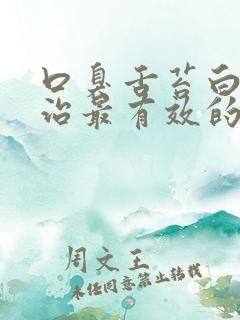 口臭舌苔白
治最有效的
周文王
未经同意禁止转载